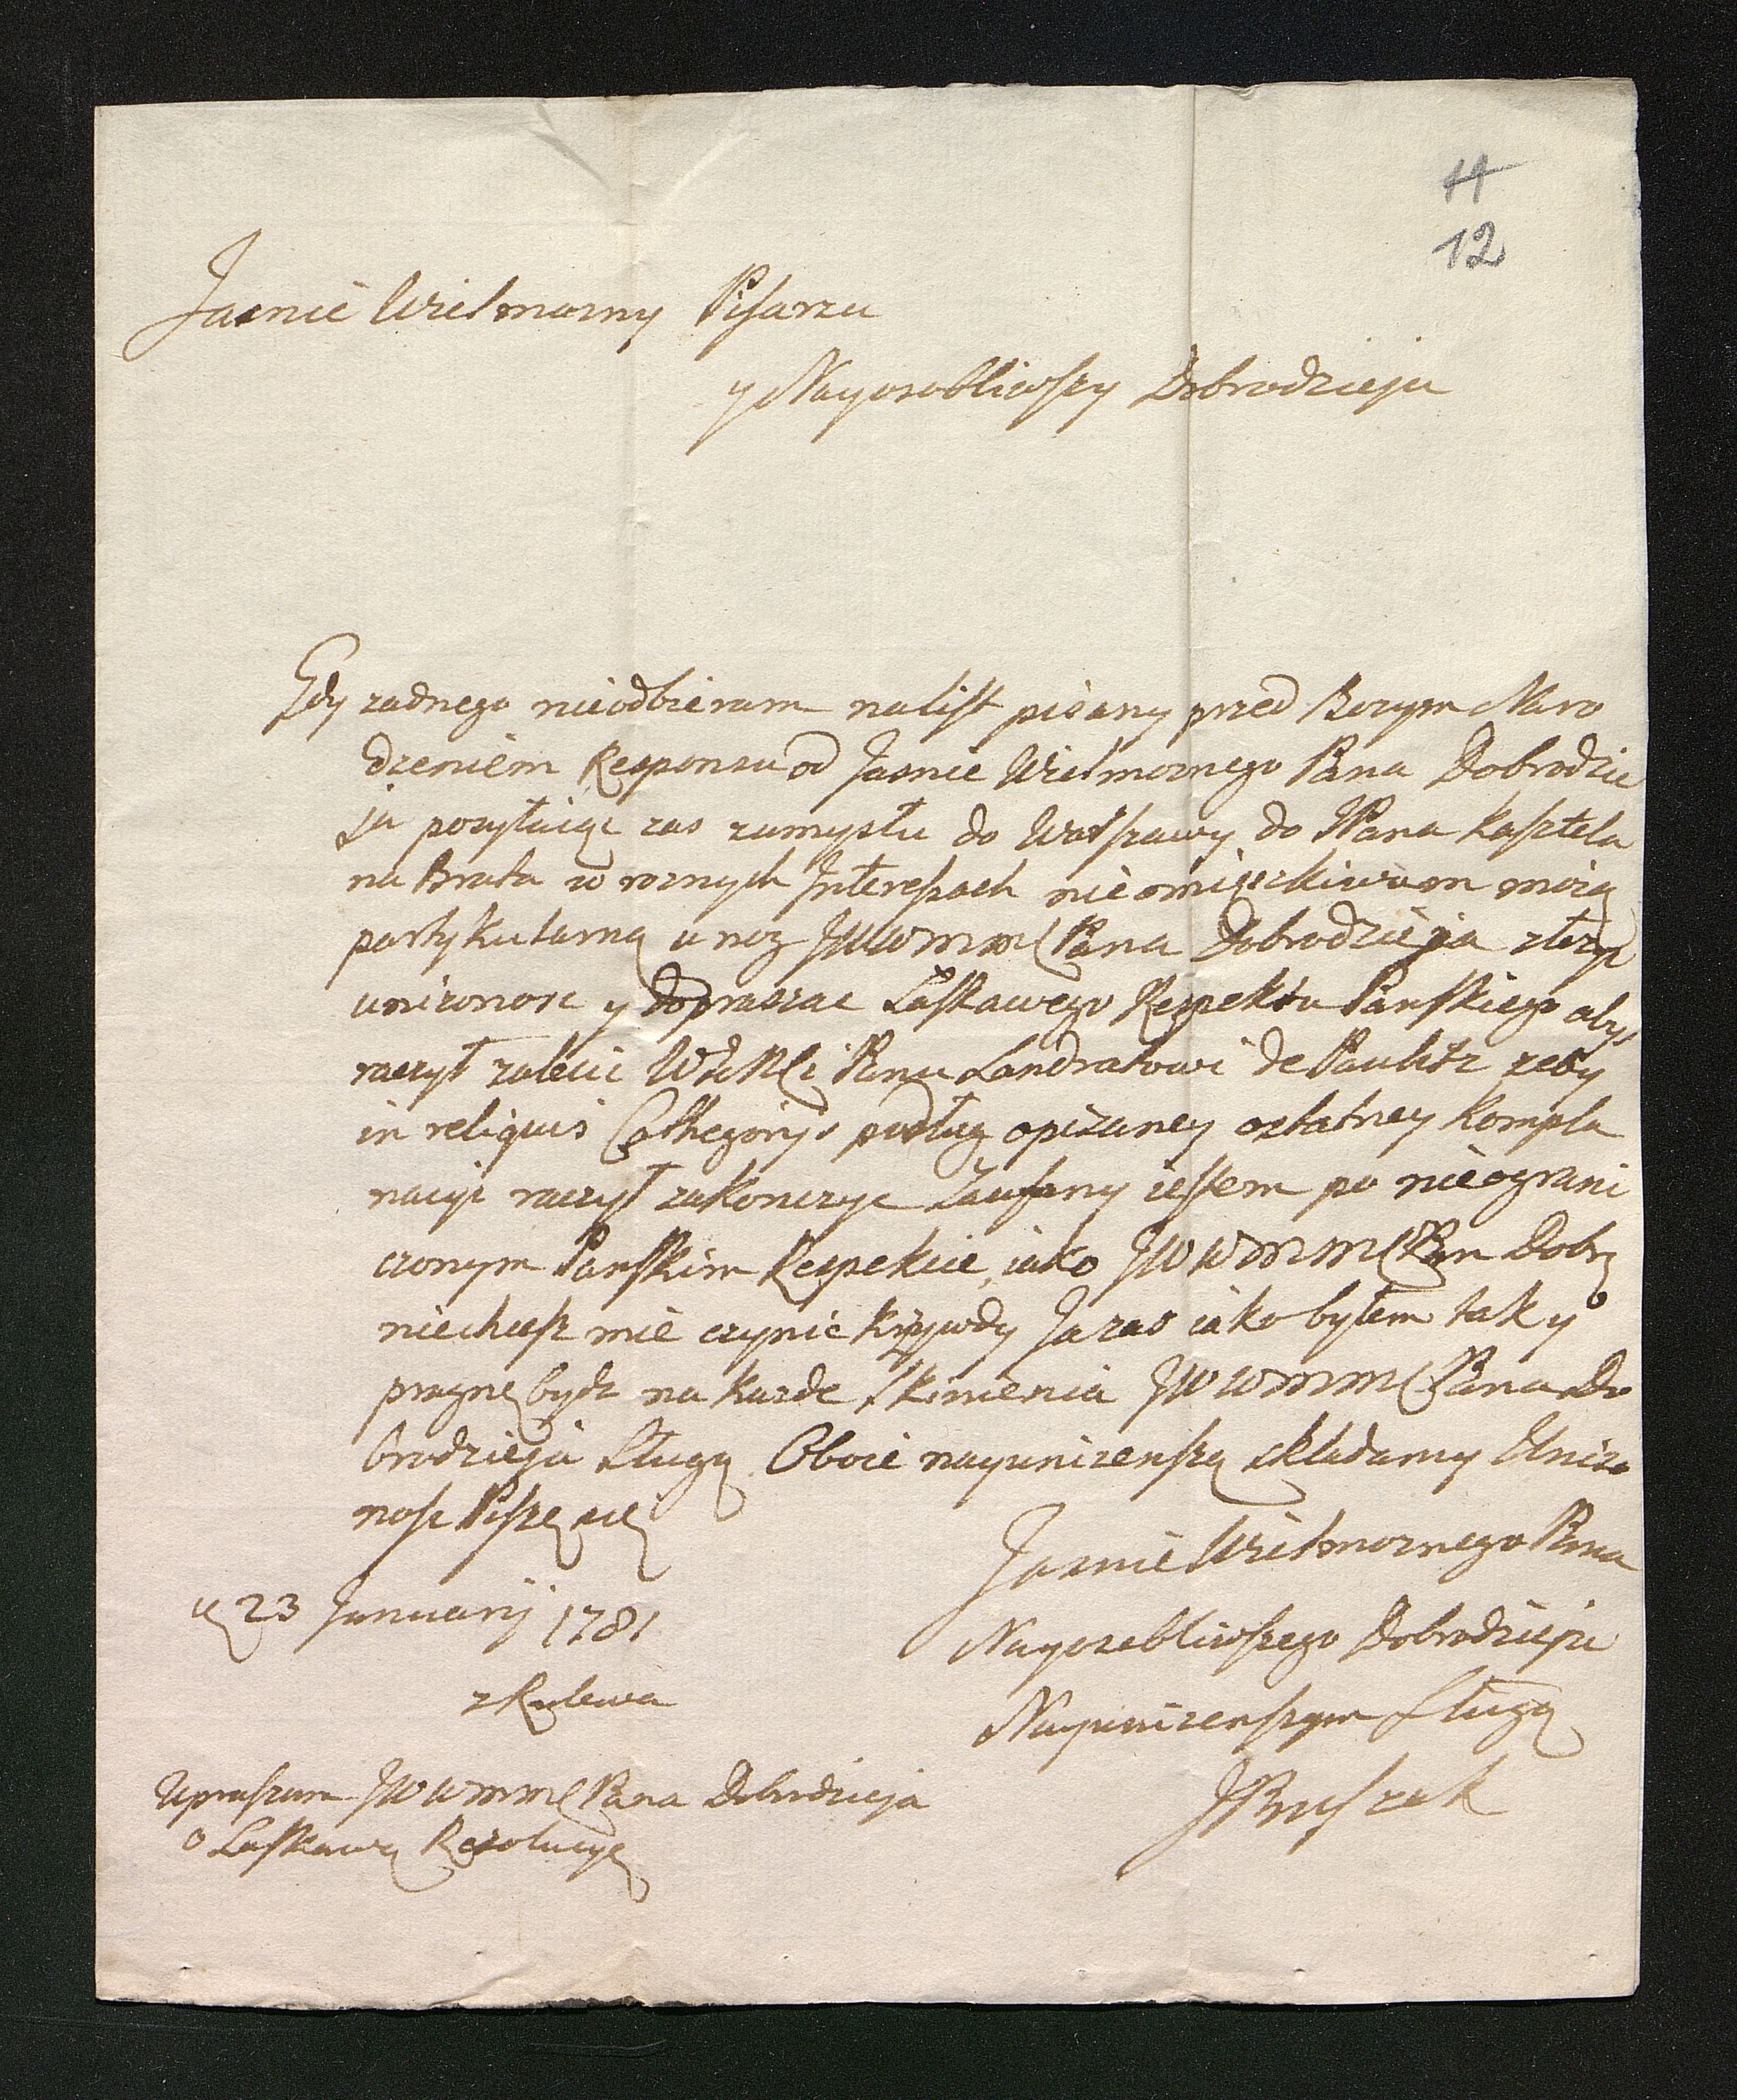 11
12
Jasnie Wielmozny Pisarzu
y Nayosobliwszy Dobrodzieju
Gdy zadnego nieodbieram nalist pisany przed Bozym Naro
dzeniem Responsu od Jasnie Wielmoznego Pana Dobrodzie
ja posyłaiąc zas zumysłu do Warszawy do Pana Kasztela
na Brata w roznych Interessach nieomięszkiwam moią
partykularną u nog JWWMM Pana Dobrodzieja złozyc
unizonosc y dopraszac Łaskawego Respektu Panskiego abys
raczył zalecic Panu Landratowi de Paulitz zeby
in reliquis Cathegorijs podług opisaney ostatney Kompla
nacyi raczył zakonczyc Zaufany iestem po nieograni
czonym Panskim Respekcie, iako JWWMM Pan Dobr
niechcesz mie czynic krzywdy Ja zas iako byłem tak y
pragnę bydz na kazde skinienia JWWMM Pana Do
brodzieja Sługą. Oboie nayunizenszą składamy Unizo
nosc Piszę się
Jasnie Wielmoznego Pana
23 Januarij 1781
Nayosobliwszego Dobrodzieja
z Rulewa
Nayunizenszym Sługą
Upraszam JWWMM Pana Dobrodzieja
o Łaskawą Rezolucyę